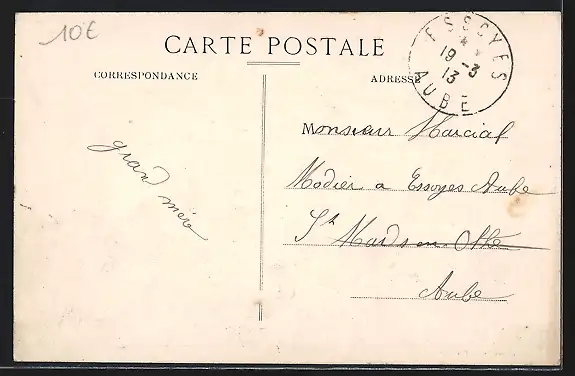 10€
CARTE POSTALE
CORRESPONDANCE
ADRESSE
ESSOYES
19 -3
13
AUBE
grand mère
Monsieur Marcial
Modier a Essoyes Aube
St Mards en Othe
Aube